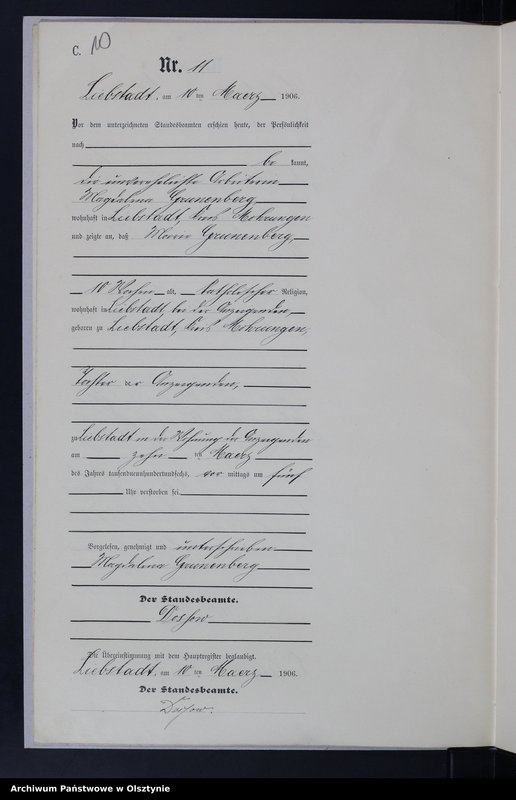 C. 10
Nr. 11
Liebstadt, am 10 ten Maerz 1906.
Vor dem unterzeichneten Standesbeamten erschien heute, der Persönlichkeit
nach
be kannt,
die unverehelichte Arbeiterin
Magdalena Grunenberg,
wohnhaft in Liebstadt, Kreis Mohrungen
und zeigte an, daß Maria Grunenberg,
10 Wochen alt, katholischer Religion,
wohnhaft in Liebstadt, bei der Anzeigenden
geboren zu Liebstadt, Kreis Mohrungen,
Tochter der Anzeigenden,
zu Liebstadt in der Wohnung der Anzeigenden
am zehn ten Maerz
des Jahres tausendneunhundertundsechs, vor mittags um fünf
Uhr verstorben sei.
Vorgelesen, genehmigt und unterschrieben
Magdalena Grunenberg
Der Standesbeamte.
Die Übereinstimmung mit dem Hauptregister beglaubigt.
Liebstadt, am 10 ten Maerz 1906.
Der Standesbeamte.
Archiwum Państwowe w Olsztynie